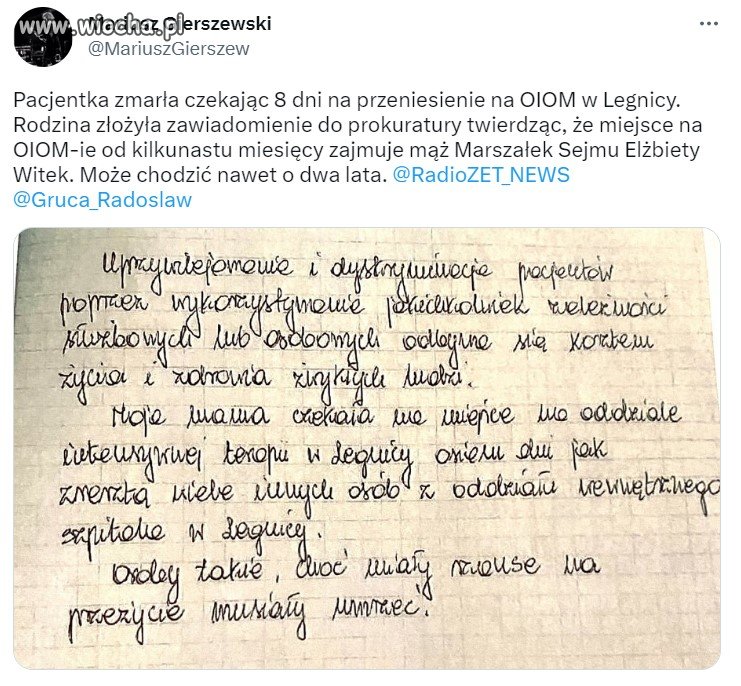 www.wiocha.pl
Mariusz Gierszewski
@MariuszGierszew
Pacjentka zmarła czekając 8 dni na przeniesienie na OIOM w Legnicy.
Rodzina złożyła zawiadomienie do prokuratury twierdząc, że miejsce na
OIOM-ie od kilkunastu miesięcy zajmuje mąż Marszałek Sejmu Elżbiety
Witek. Może chodzić nawet o dwa lata. @RadioZET_NEWS
@Gruca_Radoslaw
Uprzywilejowanie i dyskryminacja pacjentów
poprzez wykorzystywanie jakichkolwiek zależności
służbowych lub osobowych odbywa się kosztem
życia i zdrowia zwykłych ludzi.
Moja mama czekała na miejsce na oddziale
intensywnej terapii w Legnicy osiem dni jak
zresztą wiele innych osób z oddziału wewnętrznego
szpitala w Legnicy.
Osoby takie, choć miały szanse na
przeżycie musiały umrzeć.